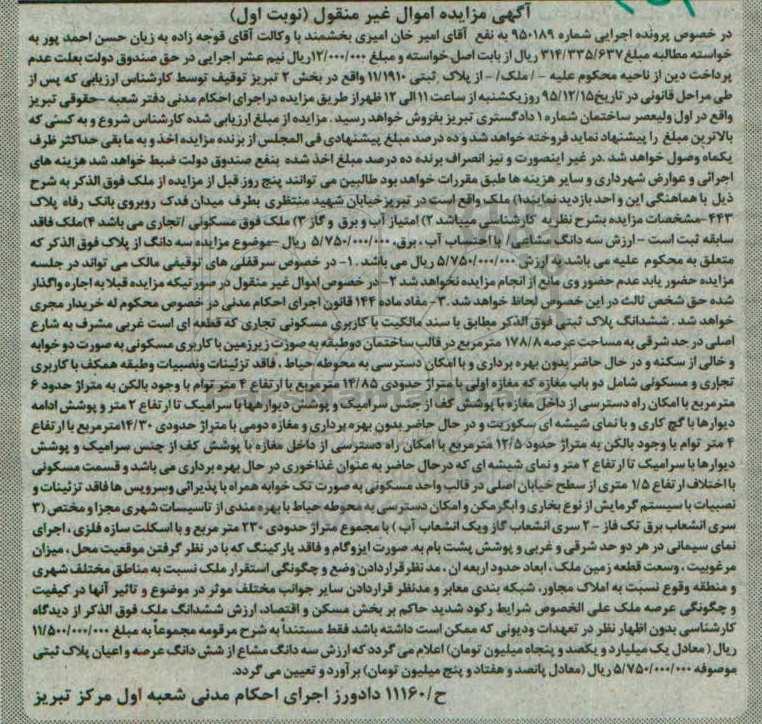 آگهی مزایده اموال غیر منقول (نوبت اول)
در خصوص پرونده اجرایی شماره ۹۵۰۱۸۹ به نفع آقای امیر خان امیری بخشمند با وکالت آقای قوجه زاده به زیان حسن احمد پور به
خواسته مطالبه مبلغ ۳۱۴/۳۳۵/۶۳۷ ریال از بابت اصل خواسته و مبلغ ۱۲/۰۰۰/۰۰۰ریال نیم عشر اجرایی در حق صندوق دولت بعلت عدم
پرداخت دین از ناحیه محکوم علیه - / ملک/ - از پلاک ثبتی ۱۱/۱۹۱۰ واقع در بخش ۲ تبریز توقیف توسط کارشناس ارزیابی که پس از
طی مراحل قانونی در تاریخ۹۵/۱۲/۱۵ روز یکشنبه از ساعت ۱۱ الی ۱۲ ظهر از طریق مزایده دراجرای احکام مدنی دفتر شعبه -حقوقی تبریز
واقع در اول ولیعصر ساختمان شماره ۱ دادگستری تبریز بفروش خواهد رسید . مزایده از مبلغ ارزیابی شده کارشناس شروع و به کسی که
بالاترین مبلغ را پیشنهاد نماید فروخته خواهد شد و ده درصد مبلغ پیشنهادی فی المجلس از برنده مزایده اخذ و به ما بقی حداکثر ظرف
یکماه وصول خواهد شد .در غیر اینصورت و نیز انصراف برنده ده درصد مبلغ اخذ شده بنفع صندوق دولت ضبط خواهد شد هزینه های
اجرائی و عوارض شهرداری و سایر هزینه ها طبق مقررات خواهد بود طالبین می توانند پنج روز قبل از مزایده از ملک فوق الذکر به شرح
ذیل با هماهنگی این و احد بازدید نمایند۱) ملک واقع است در تبریز خیابان شهید منتظری بطرف میدان فدک روبروی بانک رفاه پلاک
۴۴۳ -مشخصات مزایده بشرح نظر به کارشناسی میباشد ۲) امتیاز آب و برق و گاز ۳) ملک فوق مسکونی /تجاری می باشد ۴)ملک فاقد
سابقه ثبت است - ارزش سه دانگ مشاعی/ با احتساب آب ، برق، ۵/۷۵۰/۰۰۰/۰۰۰ ریال -موضوع مزایده سه دانگ از پلاک فوق الذکر که
متعلق به محکوم علیه می باشد به ارزش ۵/۷۵۰/۰۰۰/۰۰۰ ریال می باشد . ۱- در خصوص سرقفلی های توقیفی مالک می تواند در جلسه
مزایده حضور یابد عدم حضور وی مانع از انجام مزایده نخواهد شد ۲- در خصوص اموال غیر منقول در صورتیکه مزایده قبلا به اجاره واگذار
شده حق شخص ثالث در این خصوص لحاظ خواهد شد . ۳- مفاد ماده ۱۴۴ قانون اجرای احکام مدنی در خصوص محکوم له خریدار مجری
خواهد شد . ششدانگ پلاک ثبتی فوق الذکر مطابق با سند مالکیت با کاربری مسکونی تجاری که قطعه ای است غربی مشرف به شارع
اصلی در حد شرقی به مساحت عرصه ۱۷۸/۸ مترمربع در قالب ساختمان دوطبقه به صورت زیرزمین با کاربری مسکونی به صورت دو خوابه
و خالی از سکنه و در حال حاضر بدون بهره برداری و با امکان دسترسی به محوطه حیاط ، فاقد تزئینات ونصبیات وطبقه همکف با کاربری
تجاری و مسکونی شامل دو باب مغازه که مغازه اولی با متراژ حدودی ۱۴/۸۵ مترمربع با ارتفاع ۴ متر توام با وجود بالکن به متراژ حدود ۶
مترمربع با امکان راه دسترسی از داخل مغازه با پوشش کف از جنس سرامیک و پوشش دیوارهها با سرامیک تا ارتفاع ۲ متر و پوشش ادامه
دیوارها با گچ کاری و با نمای شیشه ای سکوریت و در حال حاضر بدون بهره برداری و مغازه دومی با متراژ حدودی ۱۴/۳۰مترمربع با ارتفاع
۴ متر توام با وجود بالکن به متراژ حدود ۱۲/۵ مترمربع با امکان راه دسترسی از داخل مغازه با پوشش کف از جنس سرامیک و پوشش
دیوارها با سرامیک تا ارتفاع ۲ متر و نمای شیشه ای که درحال حاضر به عنوان غذاخوری در حال بهره برداری می باشد و قسمت مسکونی
با اختلاف ارتفاع ۱/۵ متری از سطح خیابان اصلی در قالب واحد مسکونی به صورت تک خوابه همراه با پذیرائی وسرویس ها فاقد تزئینات و
نصبیات با سیستم گرمایش از نوع بخاری و ابگرمکن و امکان دسترسی به محوطه حیاط با بهره مندی از تاسیسات شهری مجزا و مختص (۳
سری انشعاب برق تک فاز - ۲ سری انشعاب گاز ویک انشعاب آب ) با مجموع متراژ حدودی ۲۳۰ متر مربع و با اسکلت سازه فلزی ، اجرای
نمای سیمانی در هر دو حد شرقی و غربی و پوشش پشت بام به. صورت ایزوگام و فاقد پارکینگ که با در نظر گرفتن موقعیت محل ، میزان
مرغوبیت ، وسعت قطعه زمین ملک ، ابعاد حدود اربعه ان ، مد نظر قراردادن وضع و چگونگی استقرار ملک نسبت به مناطق مختلف شهری
و منطقه وقوع نسبت به املاک مجاور، شبکه بندی معابر و مدنظر قراردادن سایر جوانب مختلف موثر در موضوع و تاثیر آنها در کیفیت
و چگونگی عرصه ملک علی الخصوص شرایط رکود شدید حاکم بر بخش مسکن و اقتصاد، ارزش ششدانگ ملک فوق الذکر از دیدگاه
کارشناسی بدون اظهار نظر در تعهدات ودیونی که ممکن است داشته باشد فقط مستنداً به شرح مرقومه مجموعاً به مبلغ ۱۱/۵۰۰/۰۰۰/۰۰۰
ریال ( معادل یک میلیارد و یکصد و پنجاه میلیون تومان) اعلام می گردد که ارزش سه دانگ مشاع از شش دانگ عرصه و اعیان پلاک ثبتی
موصوفه ۵/۷۵۰/۰۰۰/۰۰۰ ریال (معادل پانصد و هفتاد و پنج میلیون تومان) برآورد و تعیین می گردد.
ح/۱۱۱۶۰ دادورز اجرای احکام مدنی شعبه اول مرکز تبریز